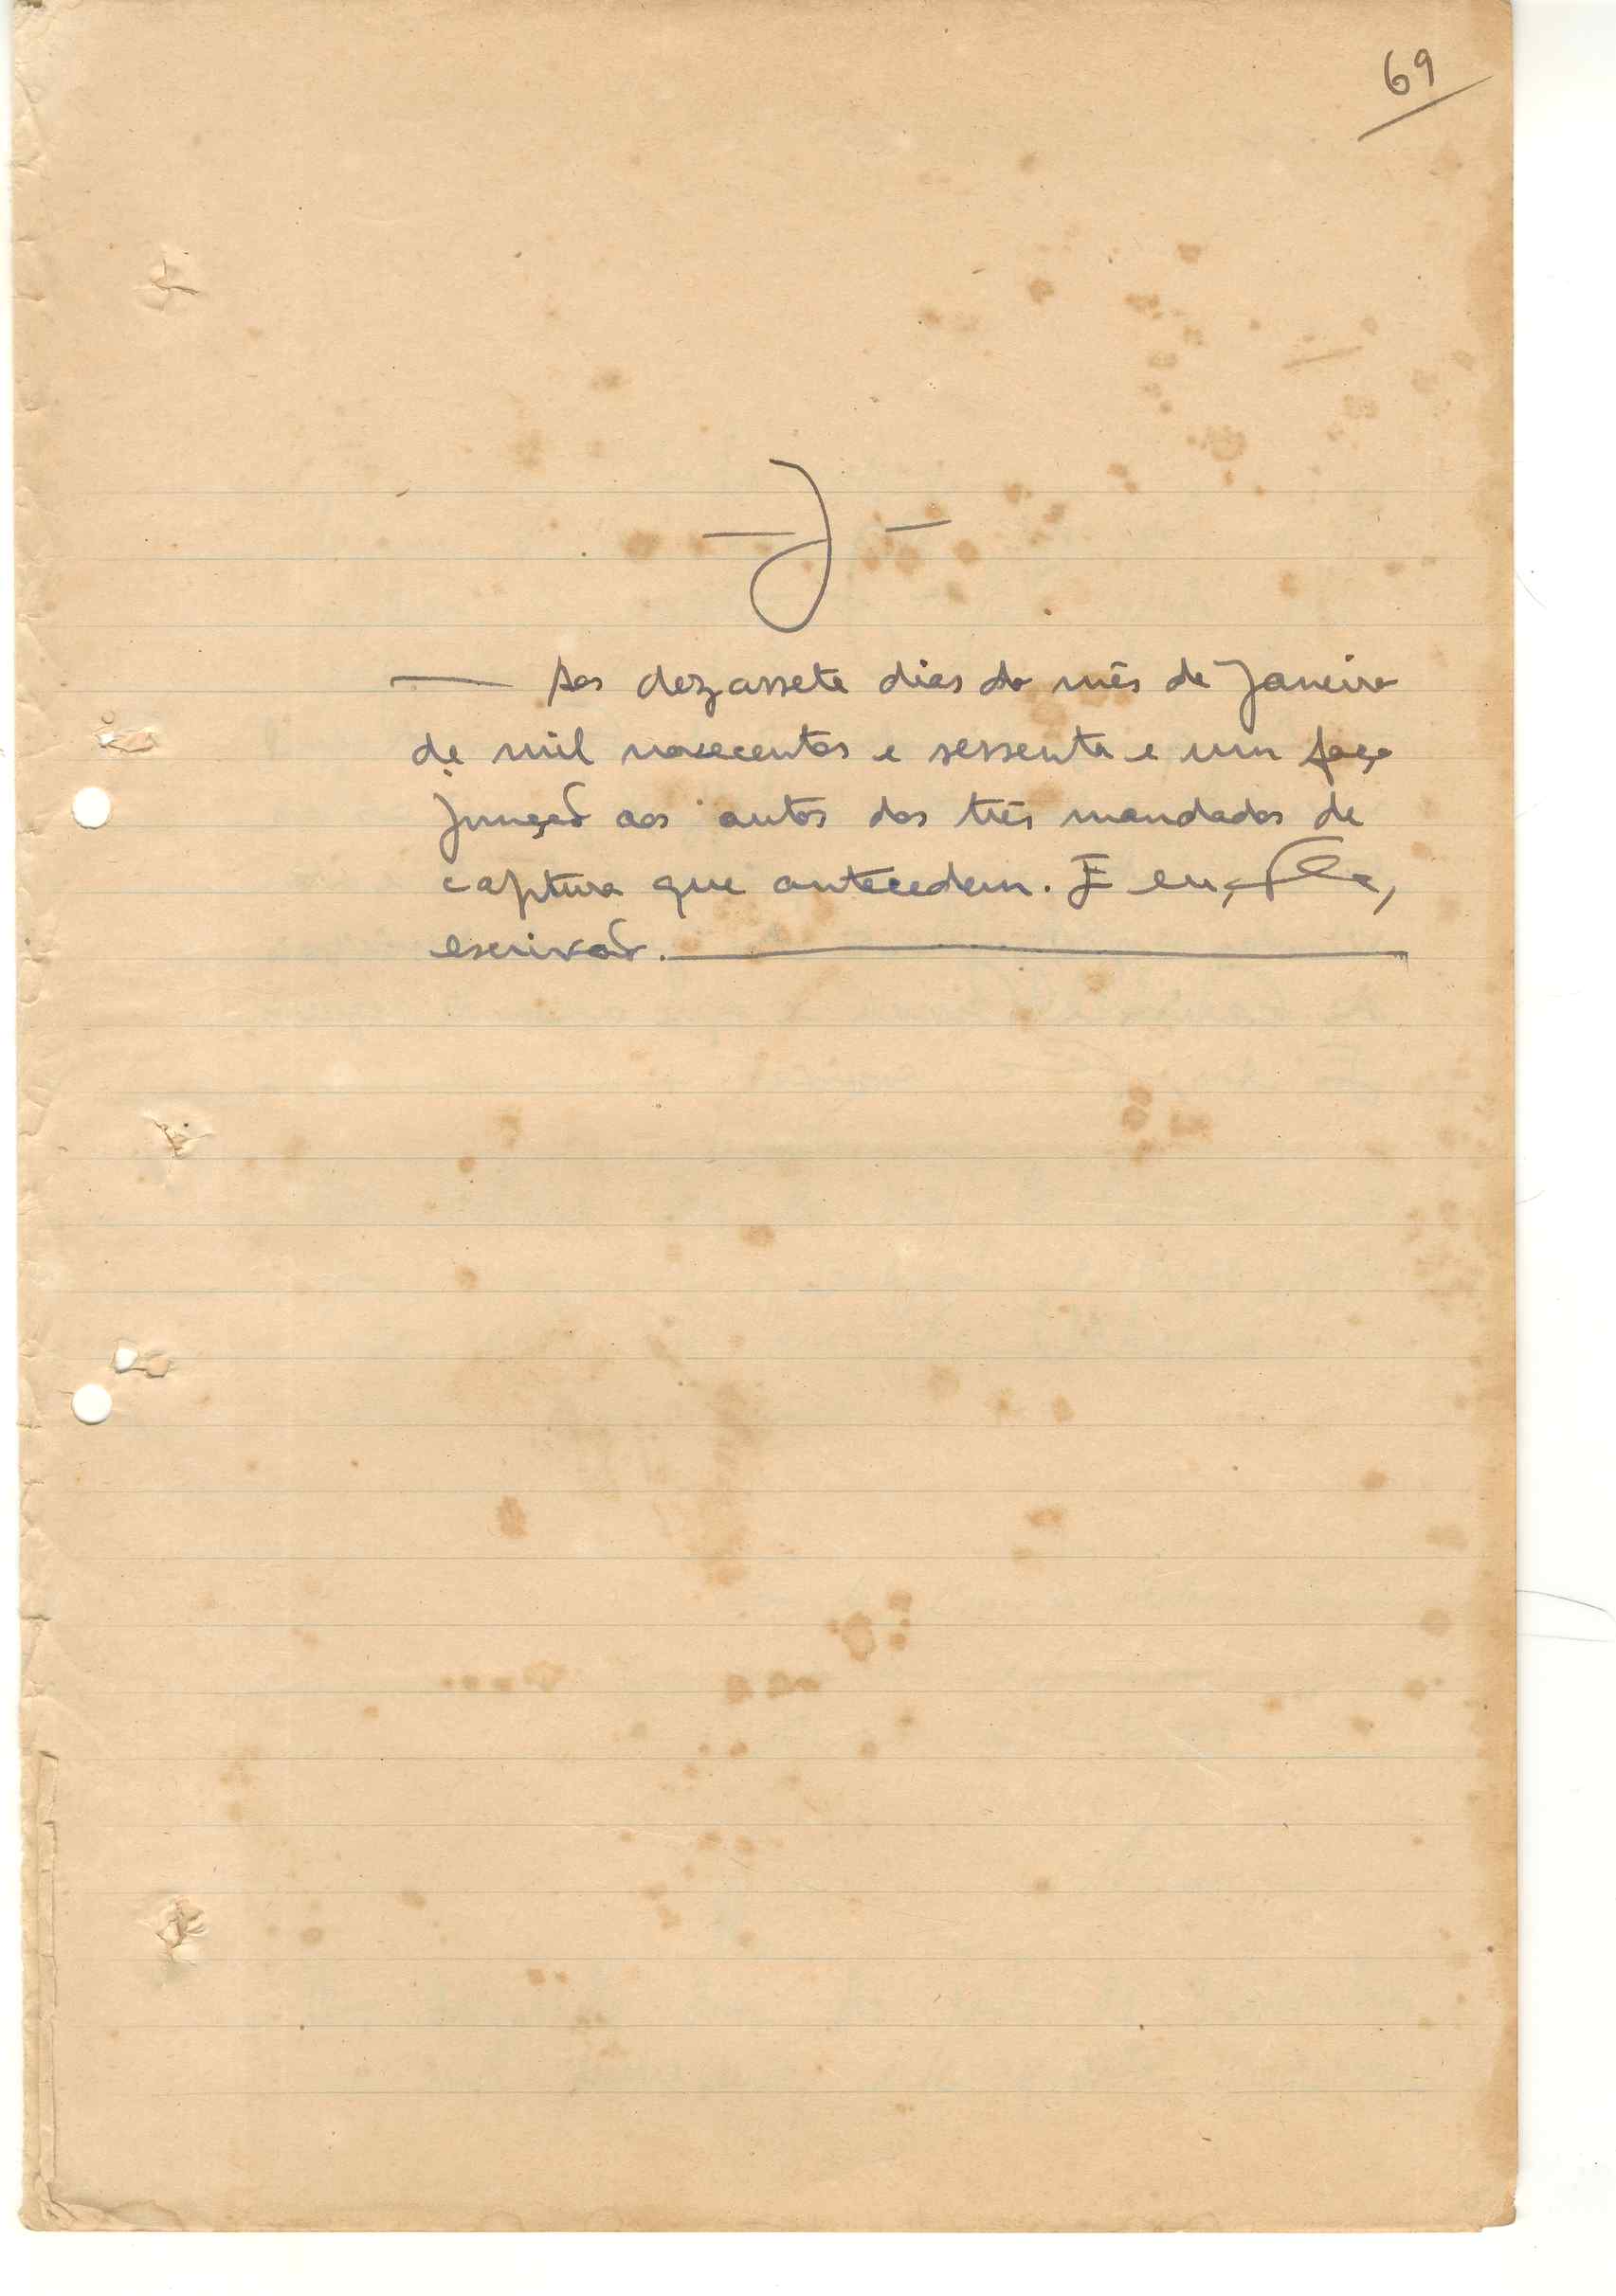 69
— J —
— Aos dezassete dias do mês de Janeiro
de mil novecentos e sessenta e um faço
junção aos autos dos três mandados de
captura que antecedem. E eu,
escrivão.